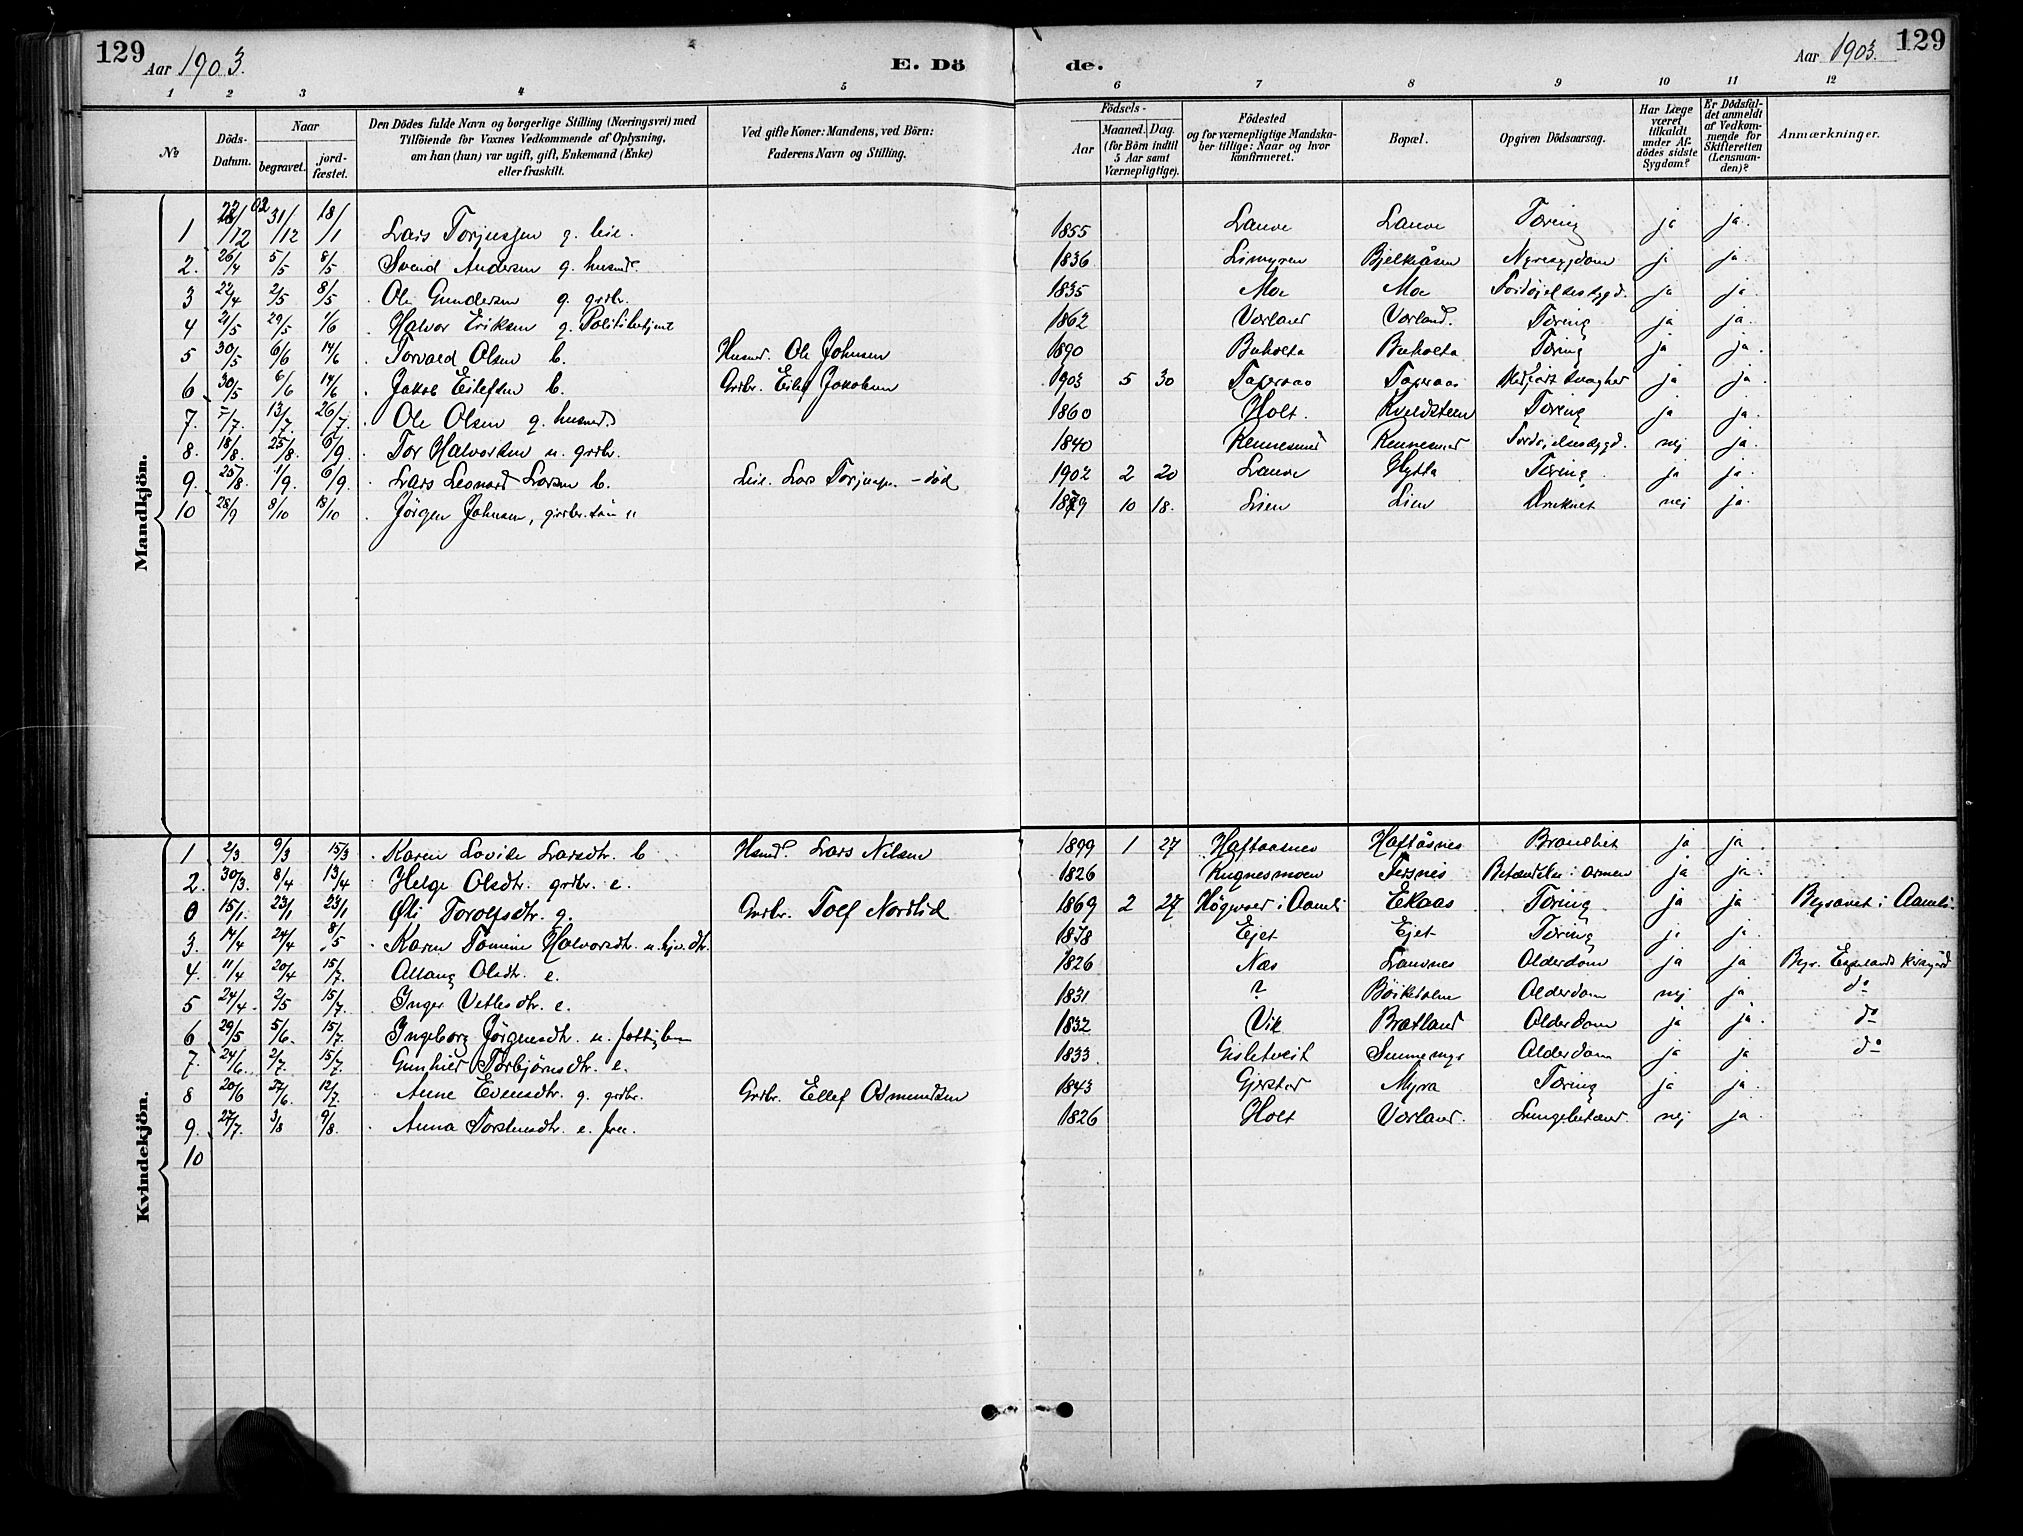 129 Aar 1903. E. Dö de. Aar 1903. 129
1 2 3 4 5 6 7 8 9 10 11 12
No
Döds-Datum.
Naar
begravet.
jordfæstet.
Den Dödes fulde Navn og borgerlige Stilling (Næringsvei) med
Tilföiende for Voxnes Vedkommende af Oplysning,
om han (hun) var ugift, gift, Enkemand (Enke)
eller fraskilt.
Ved gifte Koner: Mandens, ved Börn:
Faderens Navn og Stilling.
Födsels-
Aar
Maaned. Dag.
(for Börn indtil
5 Aar samt
Værnepligtige).
Födested
og for værnepligtige Mandska-
ber tillige: Naar og hvor
konfirmeret.
Bopæl.
Opgiven Dödsaarsag.
Har Læge
været
tilkaldt
under Af-
dödes sidste
Sygdom?
Er Dödsfal-
det anmeldt
af Vedkom-
mende for
Skifteretten
(Lensman-
den)?
Anmærkninger.
Mandkjön.
1 22/12 02 31/12 18/1 Lars Torjussen g. leil. 1855 Lauve Lauve Tæring ja ja.
2. 26/4 5/5 8/5 Svend Andersen g. husmd. 1836 Limyren Bjelkåsen Nyresygdom ja ja.
3 22/4 2/5 8/5 Ole Gundersen g. grdbr. 1835 Moe Moe ja ja.
4 21/5 29/5 1/6 Halvor Eriksen g. Politibetjent 1862 Vorland Vorland. Tæring ja ja.
5 30/5 6/6 14/6 Torvald Olsen b. Husmd. Ole Johnsen 1890 Buholta Buholta Tæring ja ja.
6 30/5 6/6 14/6 Jakob Eilefsen b. Grdbr. Eilef Jakobsen 1903 5 30 Taxeraas Taxeraas Medfødt svaghed ja ja.
7. 7/7. 13/7. 26/7. Ole Olsen g. husmd. 1860 Holt. Kveldsteen Tæring ja ja.
8. 18/8. 25/8. 6/9. Tor Halvorsen u. grdbr. 1840 Rennesund Rennesund nej ja.
9. 25/8. 1/9. 6/9. Lars Leonard Larsen b. Leil. Lars Torjussen - død 1902 2 20 Lauve Hylla Tæring ja ja.
10 28/9 8/10 18/10 Jörgen Johnsen, grdbr. sön u 1879 10 18. Lien Lien Druknet nej ja.
Kvindekjön.
1 2/3 9/3 15/3 Karen Lovise Larsdtr. b Husmd. Lars Nilsen 1899 1 27 Haftaasnes Haftåsnes Brandbit ja ja.
2. 30/3. 8/4 13/4 Helge Olsdtr. grdbr. e. 1826 Rugnesmoen Fersnes Betændelse i armen ja ja.
0 15/1. 23/1 23/1 Øli Torolfsdtr. g. Grdbr. Tolf Nordlid 1869 2 27 i Aamli Ekaas Tæring ja ja. Begravet i Aamli.
3. 14/4 24/4 8/5 Karen Tomine Halvorsdtr. u. hjv. dtr. 1878 Ejet Ejet Tæring ja ja.
4. 11/4 20/4 15/7. Aslaug Olsdtr. e. 1826 Næs Lauvnes Alderdom ja ja Begr. Espelands kirkegård
5 24/4. 2/5 15/7. Inger Vetlesdtr. e. 1831 ? Böiketolna Alderdom nej ja do
6 29/5 5/6. 15/7. Ingeborg Jörgensdtr. u. fattiglem 1832 Vik Brætland Alderdom ja ja. do
7. 24/6. 2/7. 15/7. Gunhild Torbjörnsdtr. e. 1833. Gisletveit Sunnemyr Alderdom ja ja do
8 20/6 27/6. 12/7. Anne Evensdtr. g. grdbr. Grdbr. Ellef Osmundsen 1843 Gjerstad Myra Tæring ja ja.
9. 27/7. 3/8 9/8. Anna Torstensdtr. e. 1826 Holt Vorland. Lungebetænd. nej ja.
10